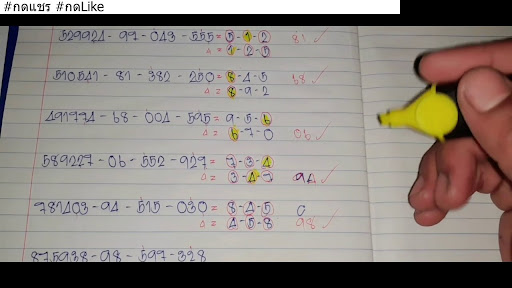 #กดแชร์ #กดLike
529924 - 97 - 043 - 555 = 5 - 1 - 2 81 ✓
Δ = 1 - 2 - 5
510541 - 81 - 382 - 250 = 8 - 4 - 5 68 ✓
Δ = 8 - 9 - 2
491774 - 68 - 004 - 595 = 9 - 5 - 6
Δ = 6 - 7 - 0 06 ✓
589227 - 06 - 552 - 927 = 7 - 3 - 4
Δ = 3 - 4 - 7 94 ✓
781403 - 94 - 515 - 030 = 8 - 4 - 5
Δ = 4 - 5 - 8 98 ✓
875938 - 98 - 597 - 328